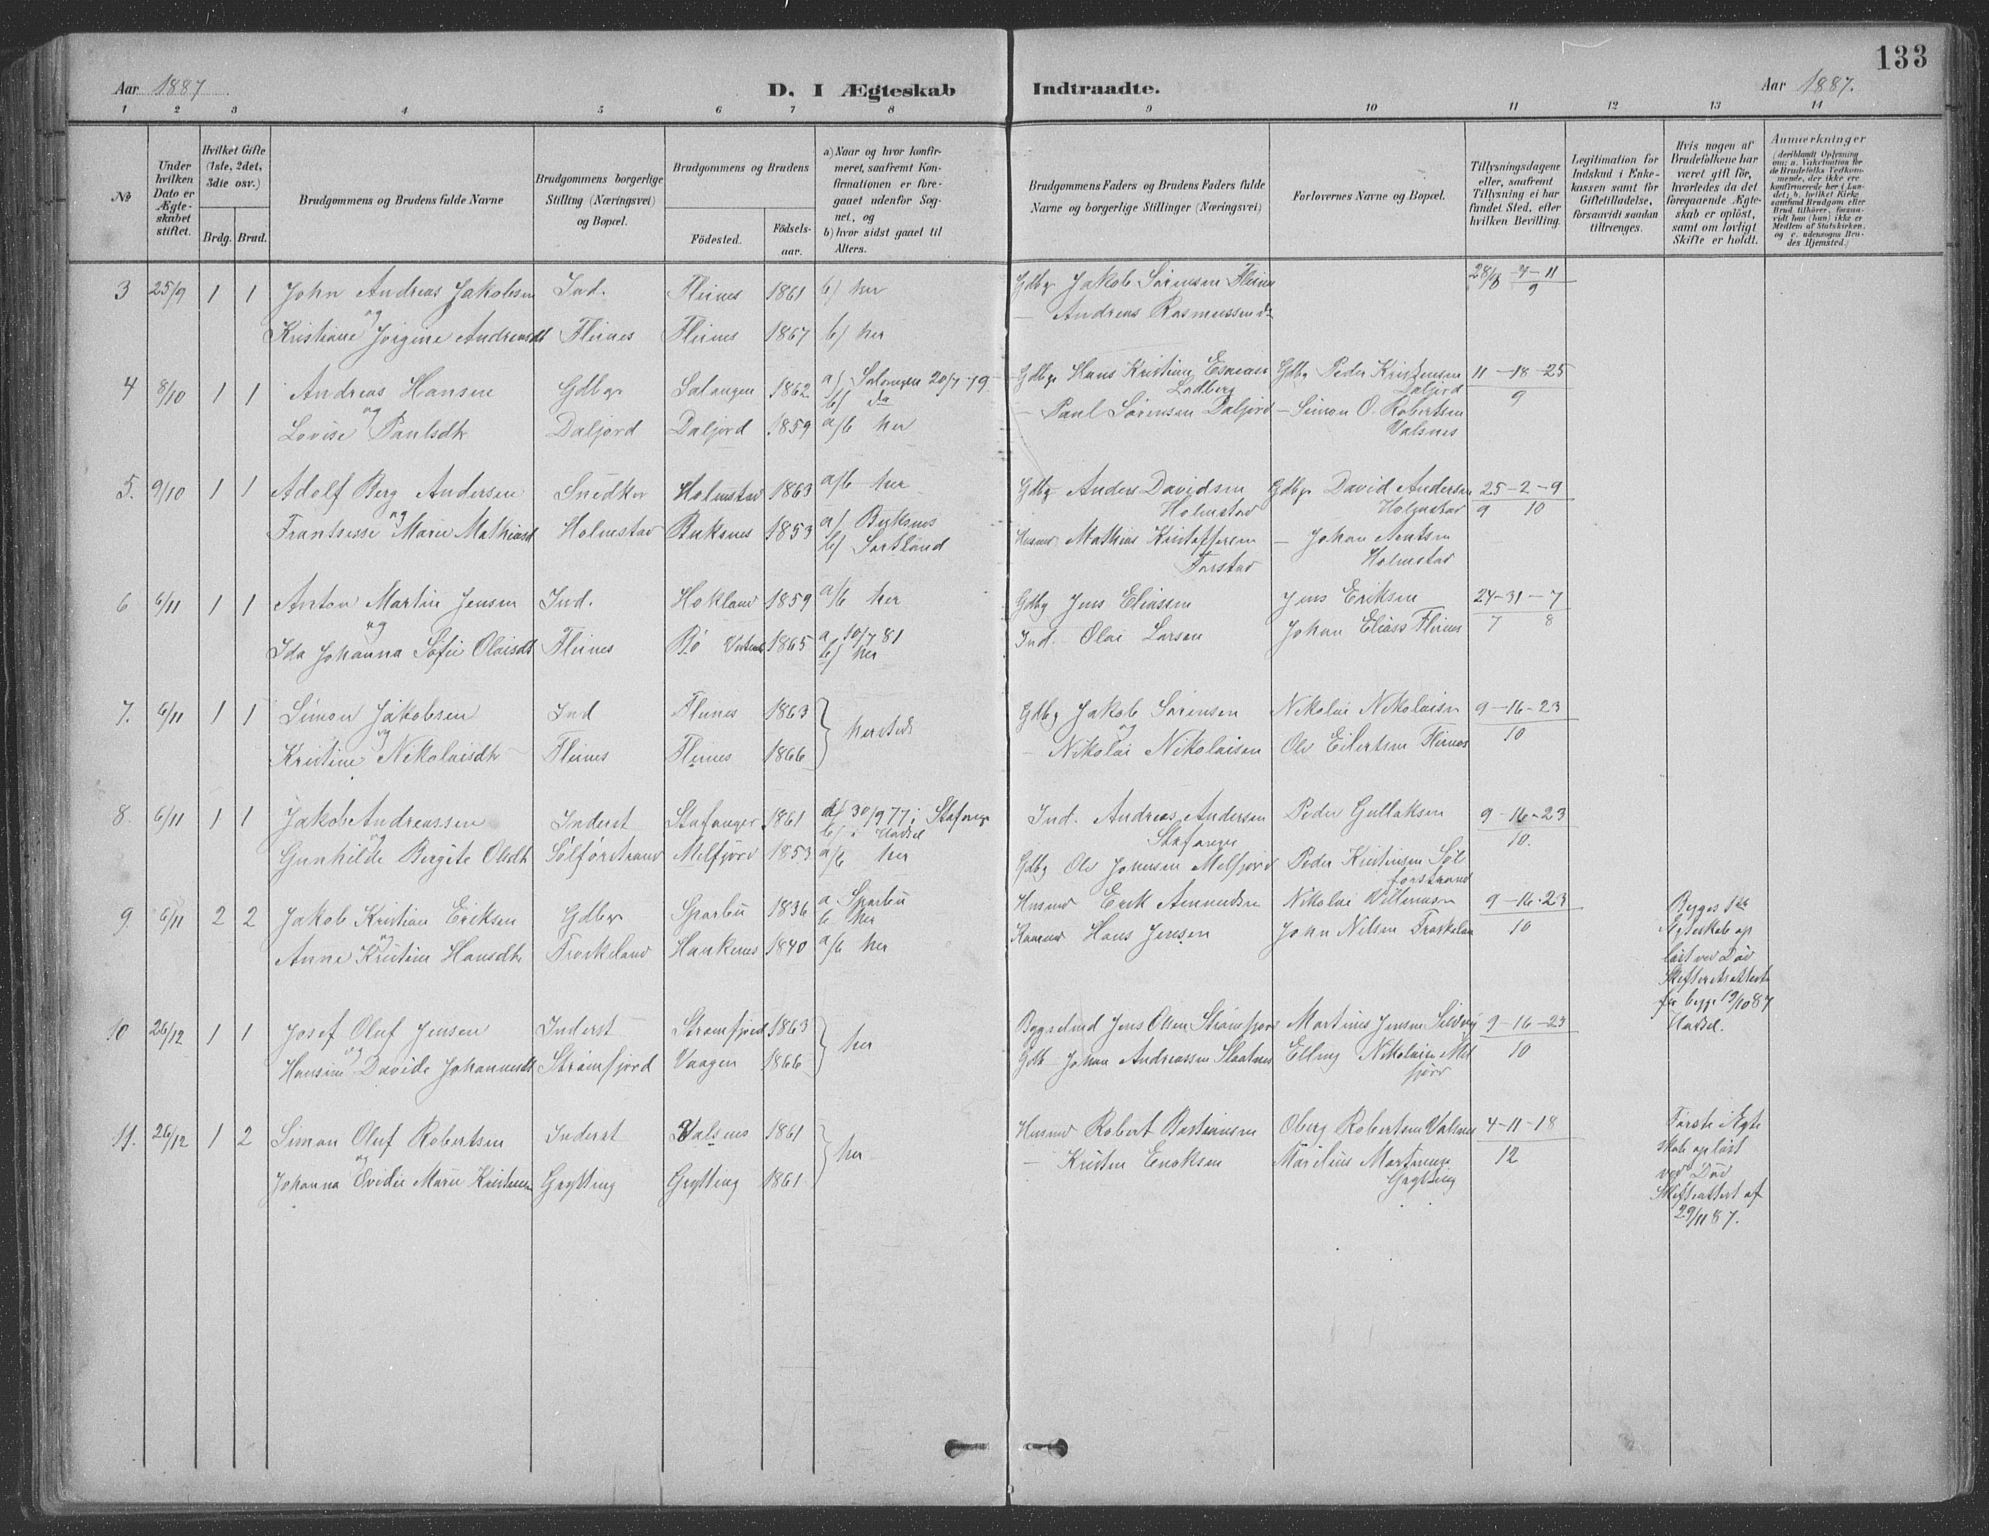 133
Aar 1887. D. I Ægteskab Indtraadte. Aar 1887.
1 2 3 4 5 6 7 8 9 10 11 12 13 14
No
Under hvilken Dato er Ægteskabet stiftet.
Hvilket Gifte (1ste, 2det, 3die osv.)
Brdg. Brud.
Brudgommens og Brudens fulde Navne
Brudgommens borgerlige Stilling (Næringsvei) og Bopæl.
Brudgommens og Brudens
Födested. Födselsaar.
a) Naar og hvor konfirmeret, saafremt Konfirmationen er foregaaet udenfor Sognet, og
b) hvor sidst gaaet til Alters.
Brudgommens Faders og Brudens Faders fulde Navne og borgerlige Stillinger (Næringsvei)
Forlovernes Navne og Bopæl.
Tillysningsdagene eller, saafremt Tillysning ei har fundet Sted, efter hvilken Bevilling.
Legitimation for Indskud i Enkekassen samt for Giftetilladelse, forsaavidt saadan tiltrænges.
Hvis nogen af Brudefolkene har været gift för, hvorledes da det foregaaende Ægteskab er oplöst, samt om lovligt Skifte er holdt.
Anmærkninger (deriblandt Oplysning om: a. Vakcination for de Brudefolks Vedkommende, der ikke ere konfirmerede her i Landet; b. hvilket Kirkesamfund Brudgom eller Brud tilhörer, forsaavidt han (hun) ikke er Medlem af Statskirken, og c. udensogns Brudes Hjemsted.)
3 25/9 1 1 John Andreas Jakobsen Ind. Flesnes 1861 b) her Gdbgr Jakob Sörensen Flesnes 28/8 - 4 - 11
og — Andreas Rasmussen do 9
Kristiane Jörgine Andreasdt Flesnes Flesnes 1867 b) her
4 8/10 1 1 Andreas Hansen Gdbgr Salangen 1862 a) Salangen 20/7-79 Gdbgr Hans Kristian Esaiasen Gdbg Peder Kristensen 11 - 18 - 25
og b) do Lodberg Daljord 9
Lovise Paulsdtr Daljord Daljord 1859 a/b her — Paul Sörensen Daljord — Simon O. Robertsen
Valsnes
5. 9/10 1 1 Adolf Berg Andersen Snedker Holmstad 1863 a/b her Gdbgr Anders Davidsen Gdbgr David Andersen 25 - 2 - 9
og Holmstad Holmstad 9 10
Marie Mathiasdt Holmstad Buksnes 1853 a) Buksnes Husmd Mathias Kristoffersen — Johan Antsen
b) Sortland Farstad Holmstad
6 6/11 1 1 Anton Martin Jensen Ind. Hokland 1859 a/b her Gdbg Jens Eliassen Jens Eriksen 24 - 31 - 7
og a 10/7 81 Ind. Olai Larsen Johan Eliass Flesnes 7 8
Ida Johanna Sofie Olaisdt Flesnes Bö 1865 b) her
7. 6/11 1 1 Simon Jakobsen Ind Flesnes 1863 hersteds Gdbg Jakob Sörensen Nikolai Nikolaisn 9 - 16 - 23
og og 10
Kristine Nikolaisdtr Flesnes Flesnes 1866 — Nikolai Nikolaisen Ole Eilertsen Flesnes
8. 6/11 1 1 Jakob Andreassen Inderst Stafanger 1861 a) 30/9 77 i Stafanger Ind. Andreas Andersen Peder Gullaksen 9 - 16 - 23
og b) i Hadsel Stafanger 10.
Gunhilde Bergite Olsdtr Sölförstrand Melfjord 1853 a/b her Gdbg Ole Johnsen Melfjord Peder Kristensen Sölforstrand
9. 6/11 2 2 Jakob Kristian Eriksen Gdbgr Sparbu 1836 a Sparbu Husmd Erik Amundsen Nikolai Villumsen 9 - 16 - 23
og b her 10
Anne Kristine Hansdtr Froskeland Haukenes 1840 a/b her Hans Jensen John Nilsen Froskeland
Begges 1ste Ægteskab oplöst ved Död Skifteretsattest for begge 19/10 87 Hadsel.
10 26/12 1 1 Josef Oluf Jensen Inderst Strömfjord 1863 her Jens Olsen Strömfjord Martines Jensen 9 - 16 - 23
og 10
Hansine Davide Johannesdt Strömfjord Vaagen 1866 Gdb Johan Andreassen Slaatnes Elling Nikolaisen Melfjord
11. 26/12 1 2 Simon Oluf Robertsen Inderst Valsnes 1861 her Husmd Robert Bastiansen Oberg Robertsen Valsnes 4 - 11 - 18
og 12
Johanna Marie Kristensen Grytting Grytting 1861 — Kristen Enoksen Marelius Martinsen
Grytting
Förste Ægteskab oplöst ved Död Skifteattest af 29/11 87.